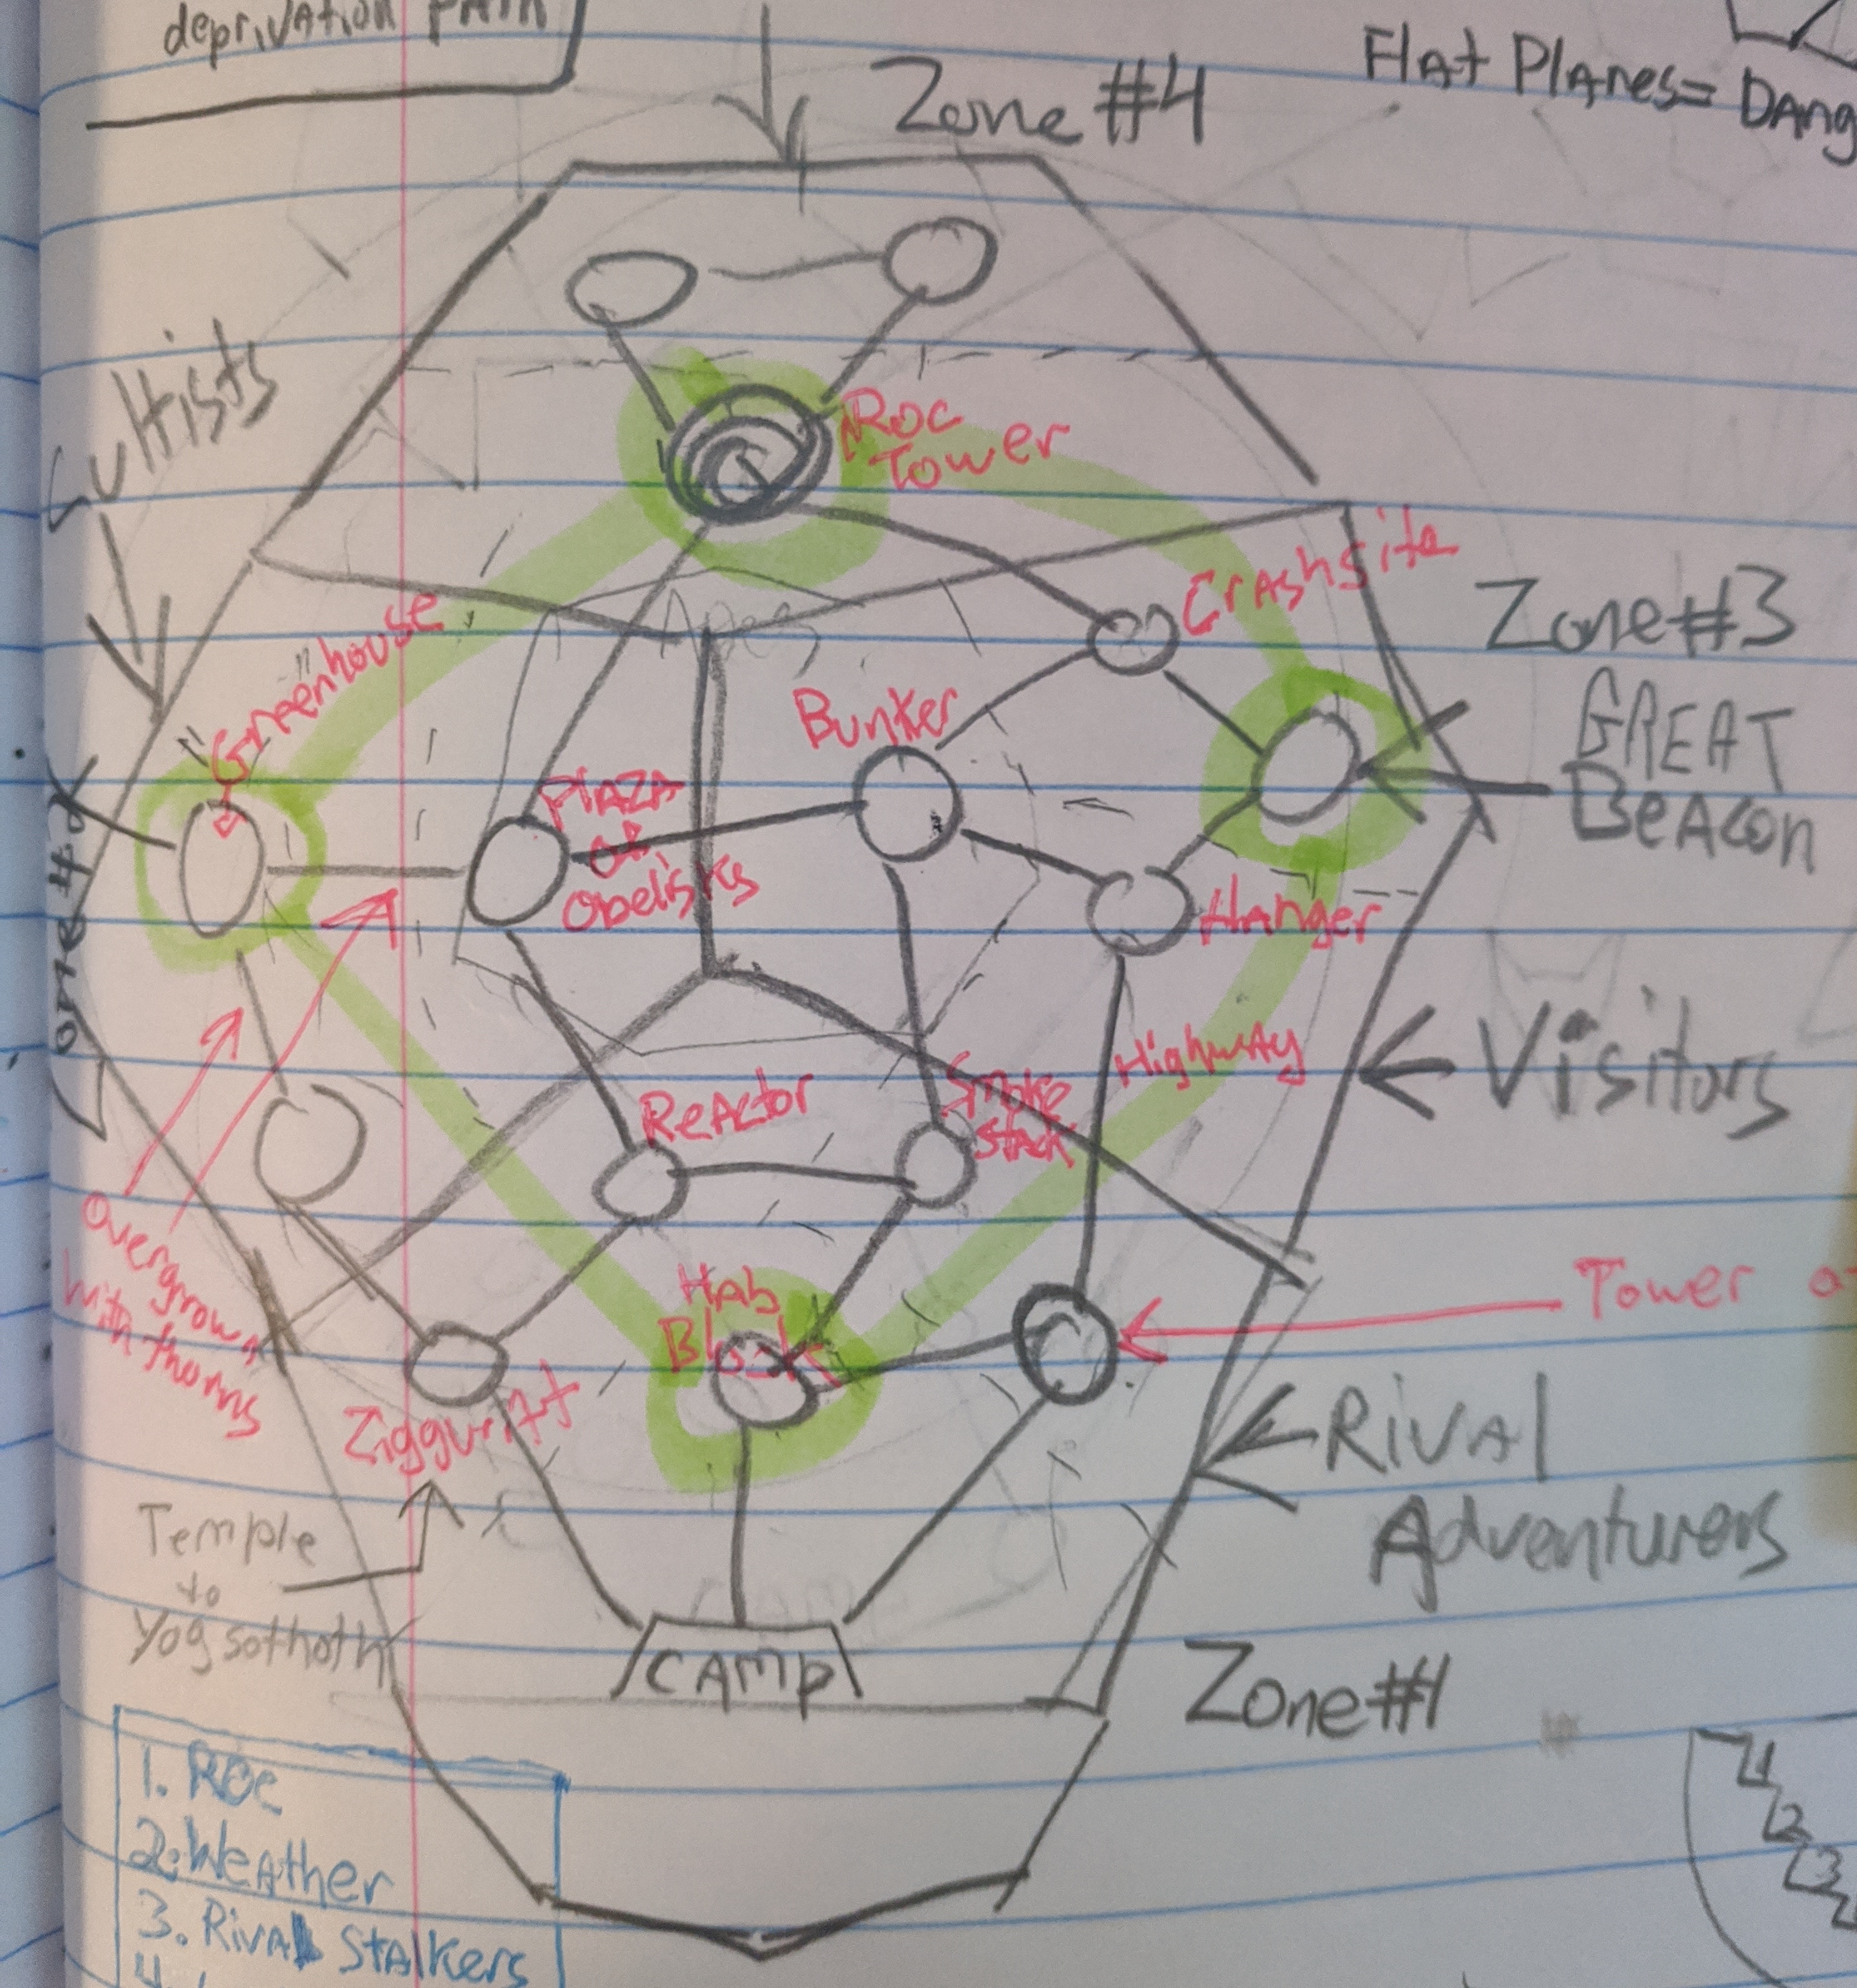 deprivation PATH
Flat Planes= DANg
Zone #4
Cultists
Roc
Tower
Crashsite
Zone #3
GREAT
BeAcon
Greenhouse
Bunker
PlAZA
of
Obelisks
HAnger
Zone #2
Visitors
Highway
ReActor
Smoke
stack
Overgrown
with thorns
HAb
Block
Tower of
Ziggurat
RivAl
Adventurers
Temple
to
Yogsothoth
CAmp
Zone #1
1. ROC
2. WeAther
3. RivAl StAlkers
4.
1
2
3